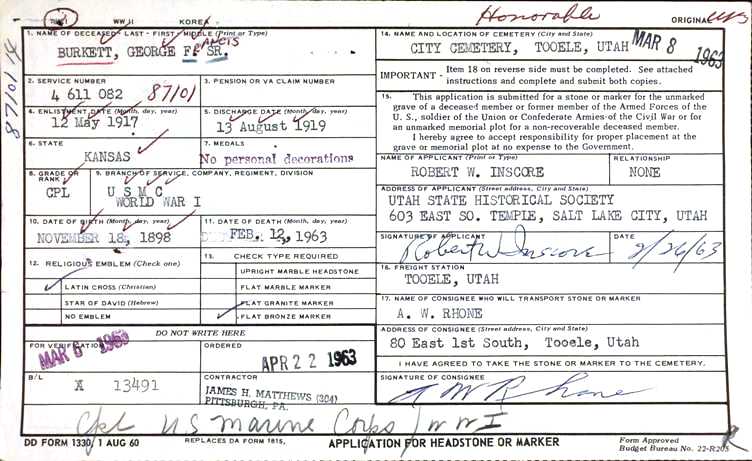 WW II KOREA Honorable ORIGINAL
1. NAME OF DECEASED - LAST - FIRST - MIDDLE (Print or Type)
BURKETT, GEORGE F. SR.
14. NAME AND LOCATION OF CEMETERY (City and State)
CITY CEMETERY, TOOELE, UTAH
MAR 8 1963
IMPORTANT - Item 18 on reverse side must be completed. See attached
instructions and complete and submit both copies.
2. SERVICE NUMBER
4 611 082 87101
3. PENSION OR VA CLAIM NUMBER
87101
4. ENLISTMENT DATE (Month, day, year)
12 May 1917
5. DISCHARGE DATE (Month, day, year)
13 August 1919
15. This application is submitted for a stone or marker for the unmarked
grave of a deceased member or former member of the Armed Forces of the
U. S., soldier of the Union or Confederate Armies of the Civil War or for
an unmarked memorial plot for a non-recoverable deceased member.
I hereby agree to accept responsibility for proper placement at the
grave or memorial plot at no expense to the Government.
6. STATE
KANSAS
7. MEDALS
No personal decorations
NAME OF APPLICANT (Print or Type)
ROBERT W. INSCORE
RELATIONSHIP
NONE
8. GRADE OR RANK
CPL
9. BRANCH OF SERVICE, COMPANY, REGIMENT, DIVISION
U S M C
WORLD WAR I
ADDRESS OF APPLICANT (Street address, City and State)
UTAH STATE HISTORICAL SOCIETY
603 EAST SO. TEMPLE, SALT LAKE CITY, UTAH
10. DATE OF BIRTH (Month, day, year)
NOVEMBER 18, 1898
11. DATE OF DEATH (Month, day, year)
FEB. 12, 1963
SIGNATURE OF APPLICANT
Robert W Inscore
DATE
2/26/63
12. RELIGIOUS EMBLEM (Check one)
LATIN CROSS (Christian)
STAR OF DAVID (Hebrew)
NO EMBLEM
13. CHECK TYPE REQUIRED
UPRIGHT MARBLE HEADSTONE
FLAT MARBLE MARKER
FLAT GRANITE MARKER
FLAT BRONZE MARKER
16. FREIGHT STATION
TOOELE, UTAH
17. NAME OF CONSIGNEE WHO WILL TRANSPORT STONE OR MARKER
A. W. RHONE
DO NOT WRITE HERE
FOR VERIFICATION
MAR 6 1963
ORDERED
APR 22 1963
ADDRESS OF CONSIGNEE (Street address, City and State)
80 East 1st South, Tooele, Utah
I HAVE AGREED TO TAKE THE STONE OR MARKER TO THE CEMETERY.
B/L
X 13491
CONTRACTOR
JAMES H. MATTHEWS (304)
PITTSBURGH, PA.
SIGNATURE OF CONSIGNEE
A W Rhone
Cpl US Marine Corps / WW I
DD FORM 1330, 1 AUG 60
REPLACES DA FORM 1815,
APPLICATION FOR HEADSTONE OR MARKER
Form Approved
Budget Bureau No. 22-R205